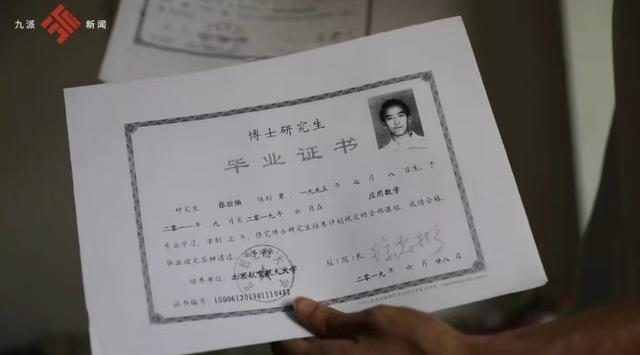 九派 新闻
博士研究生
毕业证书
研究生 张炘炀 性别 男，一九九五年 七 月 八 日生，于
二〇一一年 九 月至 二〇一九年 六 月在 应用数学
专业学习，学制 年，修完博士研究生培养计划规定的全部课程，成绩合格，
毕业论文答辩通过。
培养单位：北京航空航天大学 校（院）长：
证书编号：100061201901110482 二〇一九年 六 月 十八 日